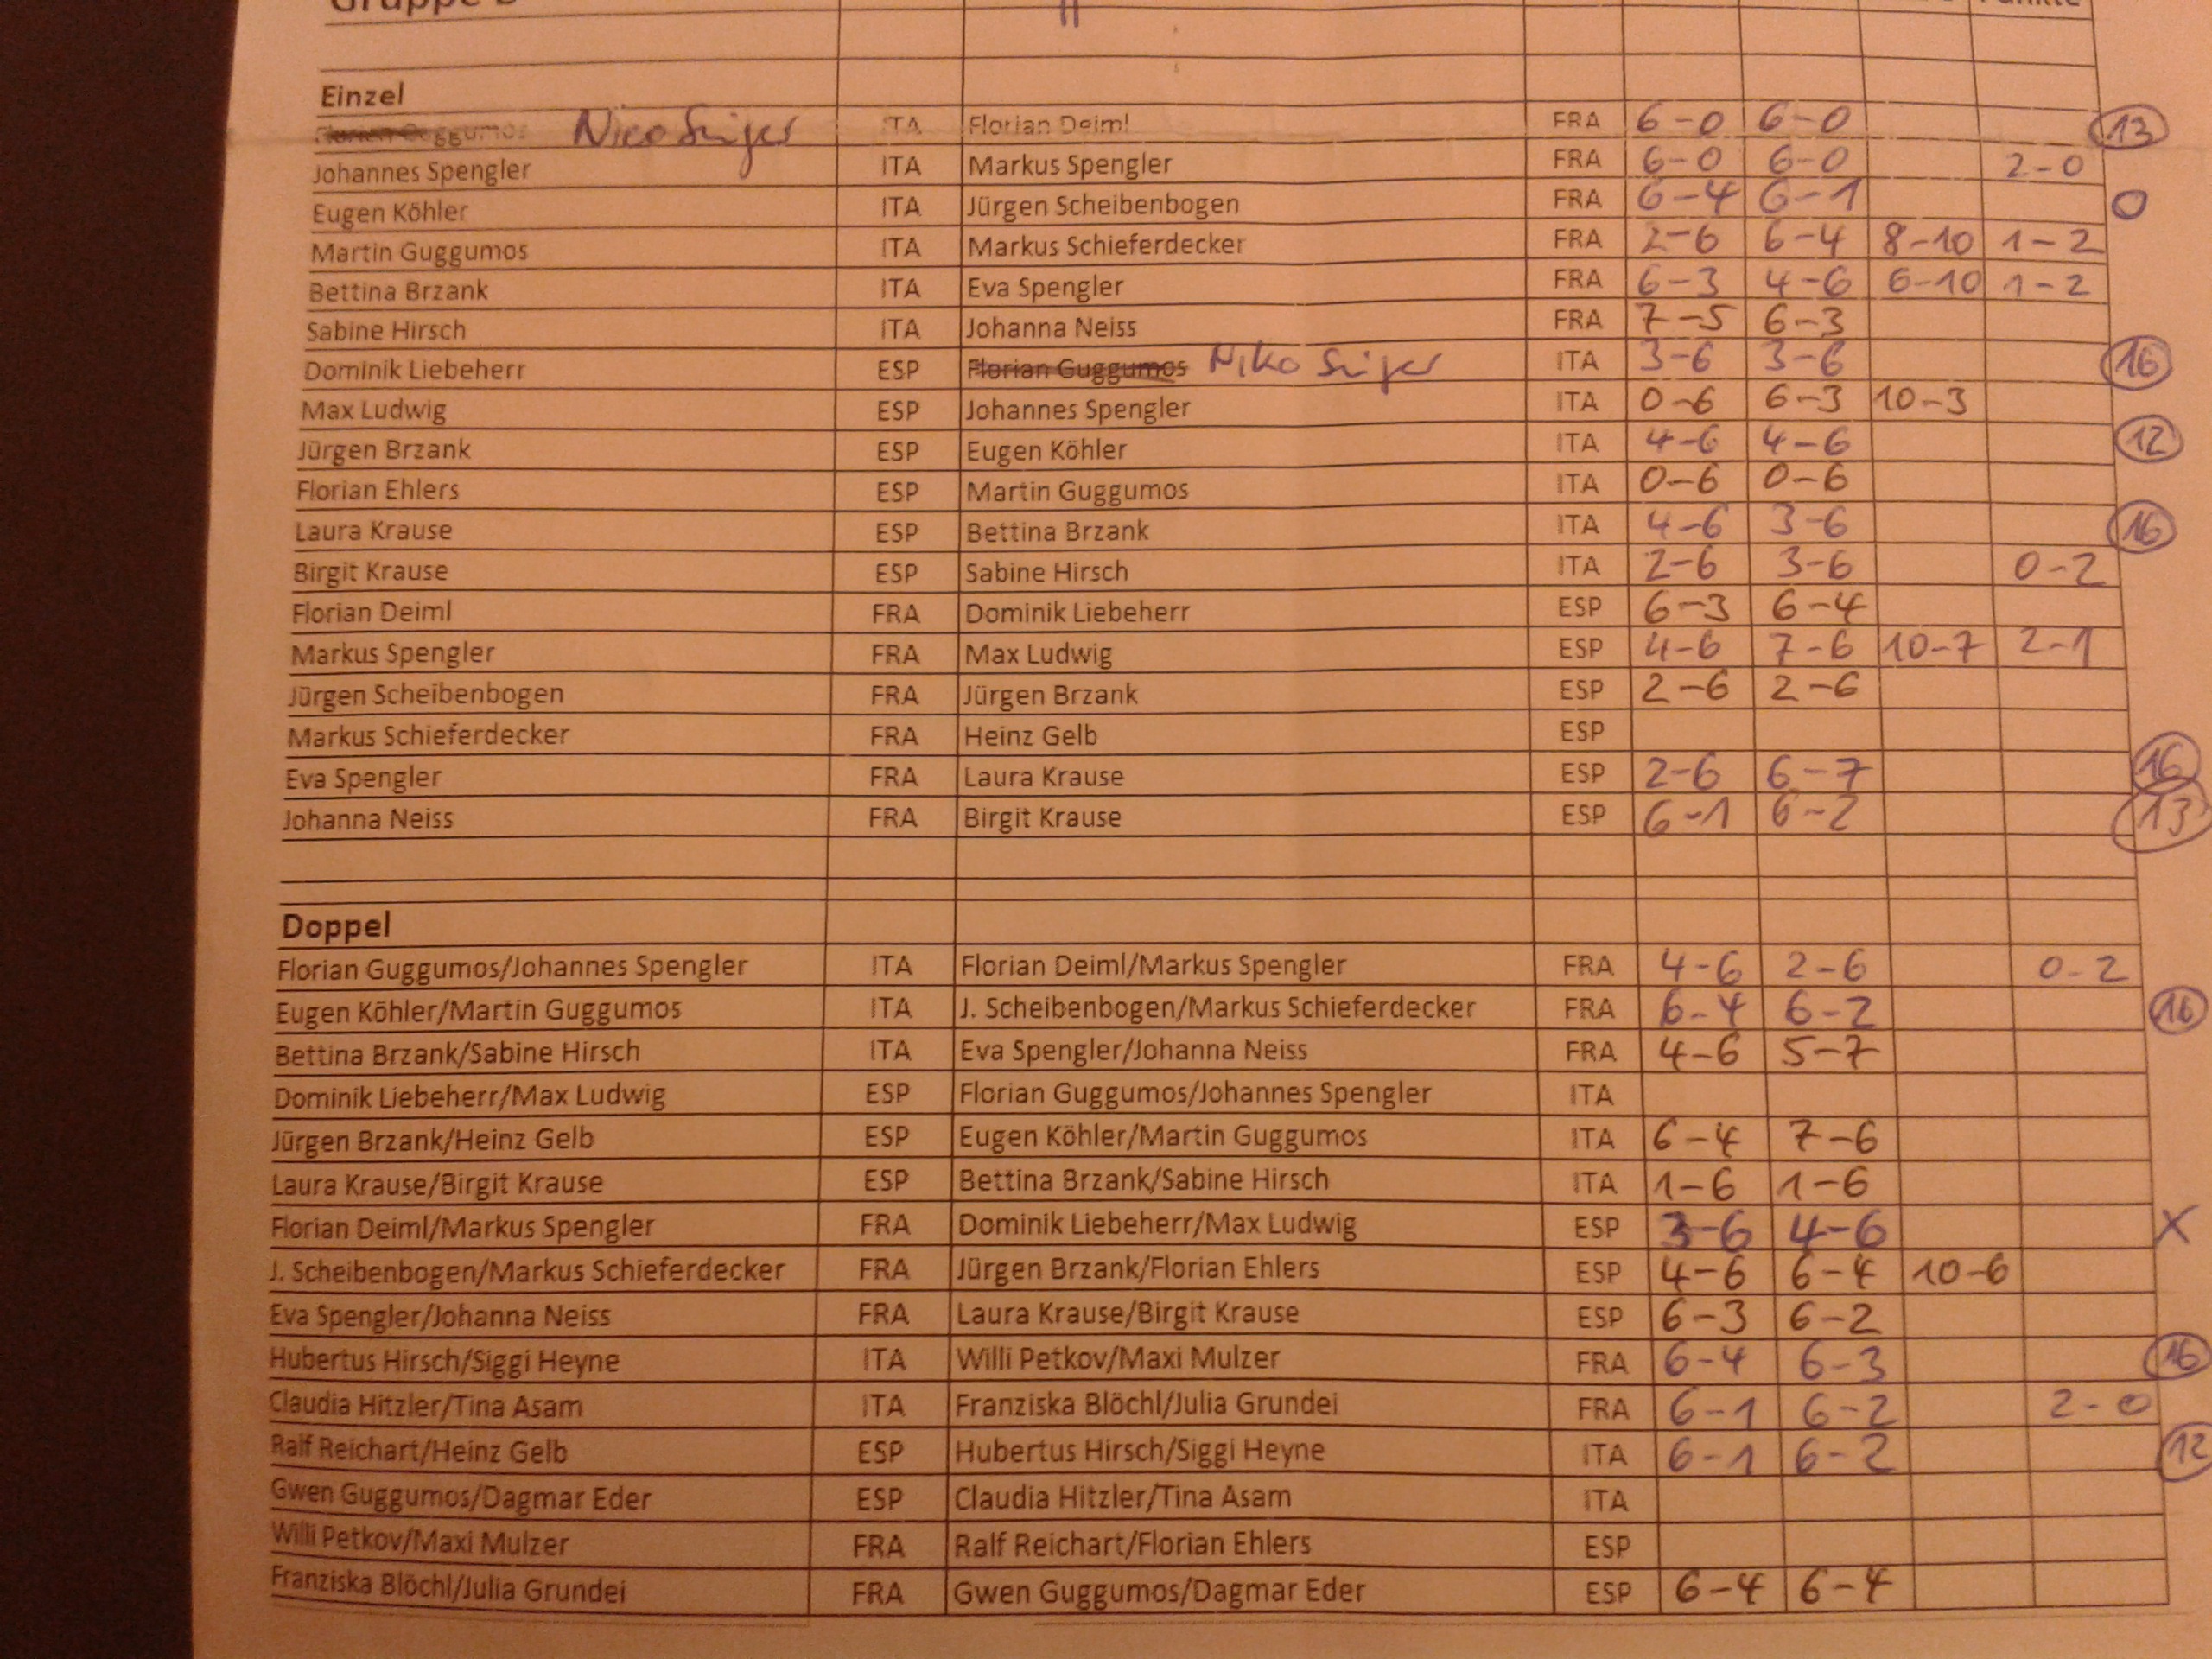 Gruppe
Punkte
Einzel
Florian Guggumos Nico ITA Florian Deiml FRA 6-0 6-0 13
Johannes Spengler ITA Markus Spengler FRA 6-0 6-0 2-0
Eugen Köhler ITA Jürgen Scheibenbogen FRA 6-4 6-1 0
Martin Guggumos ITA Markus Schieferdecker FRA 2-6 6-4 8-10 1-2
Bettina Brzank ITA Eva Spengler FRA 6-3 4-6 6-10 1-2
Sabine Hirsch ITA Johanna Neiss FRA 7-5 6-3
Dominik Liebeherr ESP Florian Guggumos Niko ITA 3-6 3-6 16
Max Ludwig ESP Johannes Spengler ITA 0-6 6-3 10-3
Jürgen Brzank ESP Eugen Köhler ITA 4-6 4-6 12
Florian Ehlers ESP Martin Guggumos ITA 0-6 0-6
Laura Krause ESP Bettina Brzank ITA 4-6 3-6 16
Birgit Krause ESP Sabine Hirsch ITA 2-6 3-6 0-2
Florian Deiml FRA Dominik Liebeherr ESP 6-3 6-4
Markus Spengler FRA Max Ludwig ESP 4-6 7-6 10-7 2-1
Jürgen Scheibenbogen FRA Jürgen Brzank ESP 2-6 2-6
Markus Schieferdecker FRA Heinz Gelb ESP
Eva Spengler FRA Laura Krause ESP 2-6 6-7 16
Johanna Neiss FRA Birgit Krause ESP 6-1 6-2 13
Doppel
Florian Guggumos/Johannes Spengler ITA Florian Deiml/Markus Spengler FRA 4-6 2-6 0-2
Eugen Köhler/Martin Guggumos ITA J. Scheibenbogen/Markus Schieferdecker FRA 6-4 6-2 16
Bettina Brzank/Sabine Hirsch ITA Eva Spengler/Johanna Neiss FRA 4-6 5-7
Dominik Liebeherr/Max Ludwig ESP Florian Guggumos/Johannes Spengler ITA
Jürgen Brzank/Heinz Gelb ESP Eugen Köhler/Martin Guggumos ITA 6-4 7-6
Laura Krause/Birgit Krause ESP Bettina Brzank/Sabine Hirsch ITA 1-6 1-6
Florian Deiml/Markus Spengler FRA Dominik Liebeherr/Max Ludwig ESP 3-6 4-6 X
J. Scheibenbogen/Markus Schieferdecker FRA Jürgen Brzank/Florian Ehlers ESP 4-6 6-4 10-6
Eva Spengler/Johanna Neiss FRA Laura Krause/Birgit Krause ESP 6-3 6-2
Hubertus Hirsch/Siggi Heyne ITA Willi Petkov/Maxi Mulzer FRA 6-4 6-3 16
Claudia Hitzler/Tina Asam ITA Franziska Blöchl/Julia Grundei FRA 6-1 6-2 2-0
Ralf Reichart/Heinz Gelb ESP Hubertus Hirsch/Siggi Heyne ITA 6-1 6-2 12
Gwen Guggumos/Dagmar Eder ESP Claudia Hitzler/Tina Asam ITA
Willi Petkov/Maxi Mulzer FRA Ralf Reichart/Florian Ehlers ESP
Franziska Blöchl/Julia Grundei FRA Gwen Guggumos/Dagmar Eder ESP 6-4 6-4